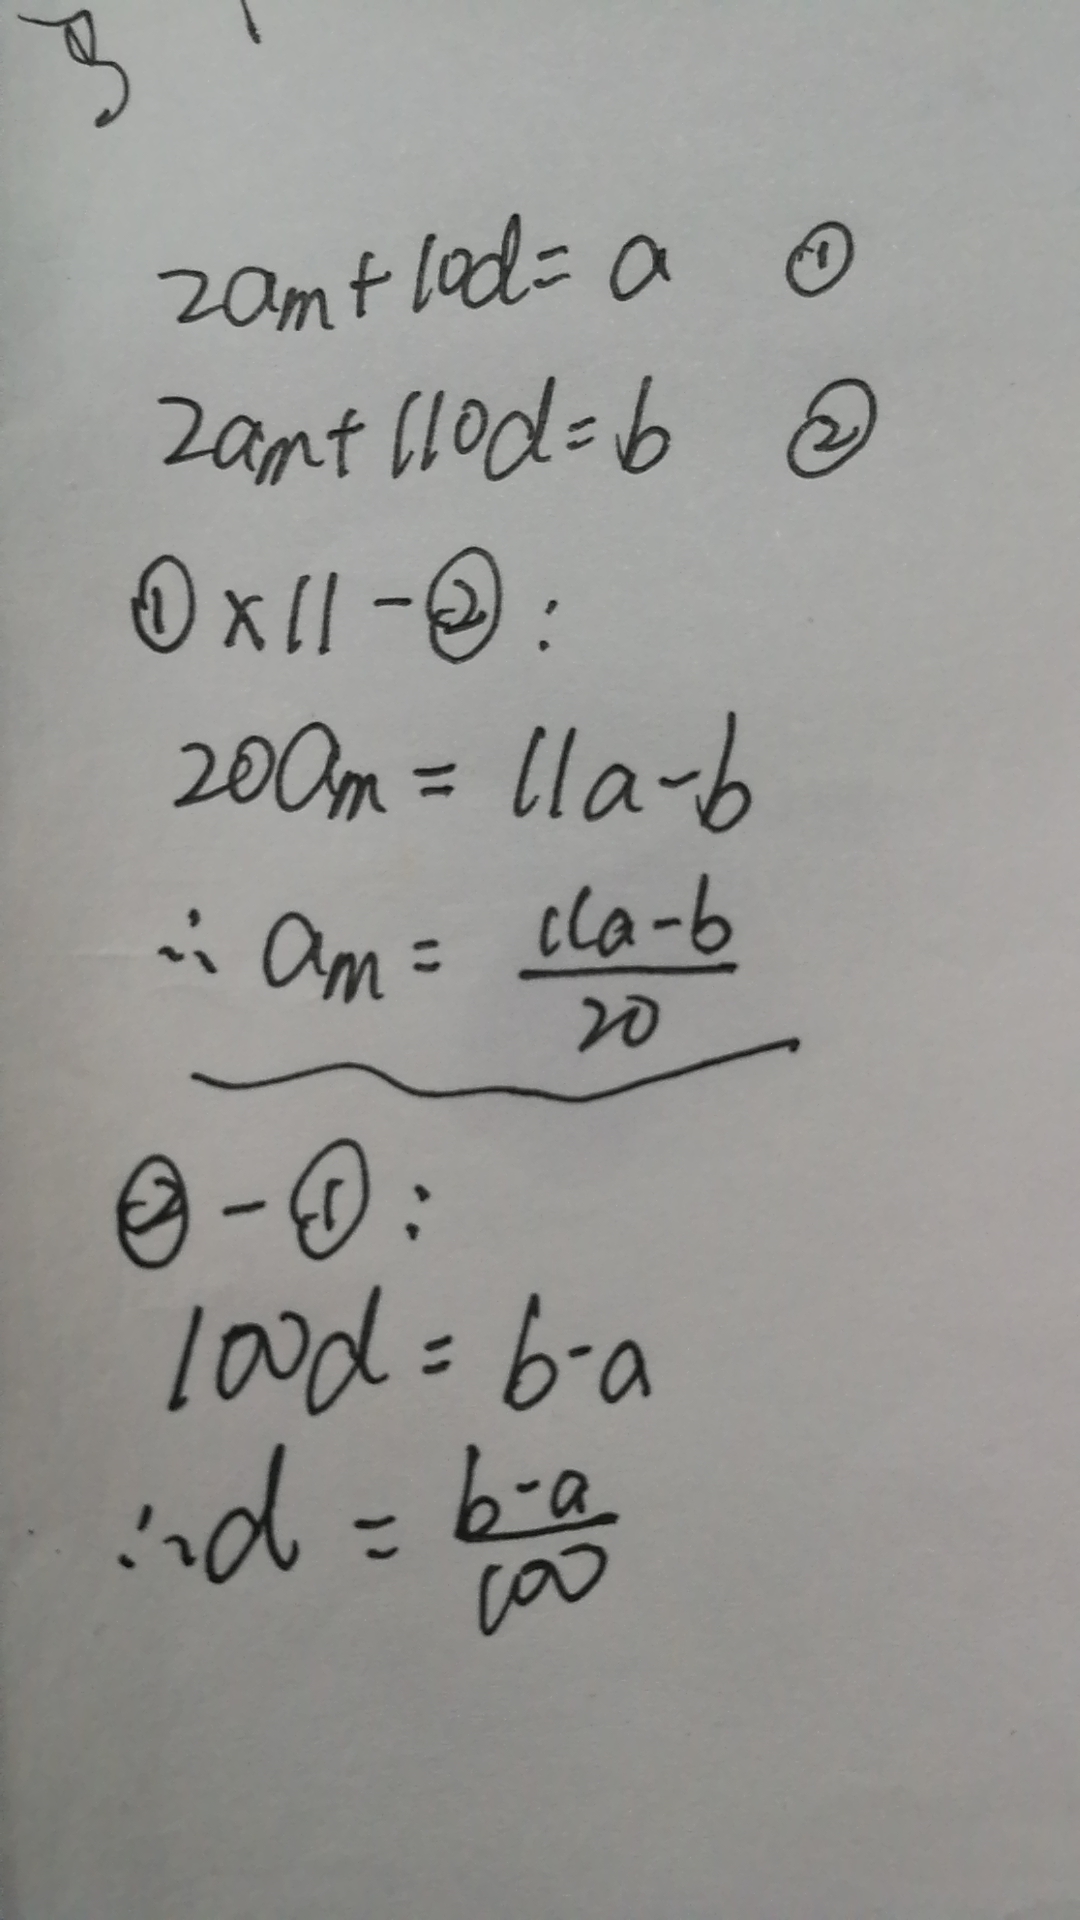 2am+10d=a ①
2am+110d=b ②
①×11-②:
20am=11a-b
∴ am=11a-b/20
②-①:
100d=b-a
∴d=b-a/100